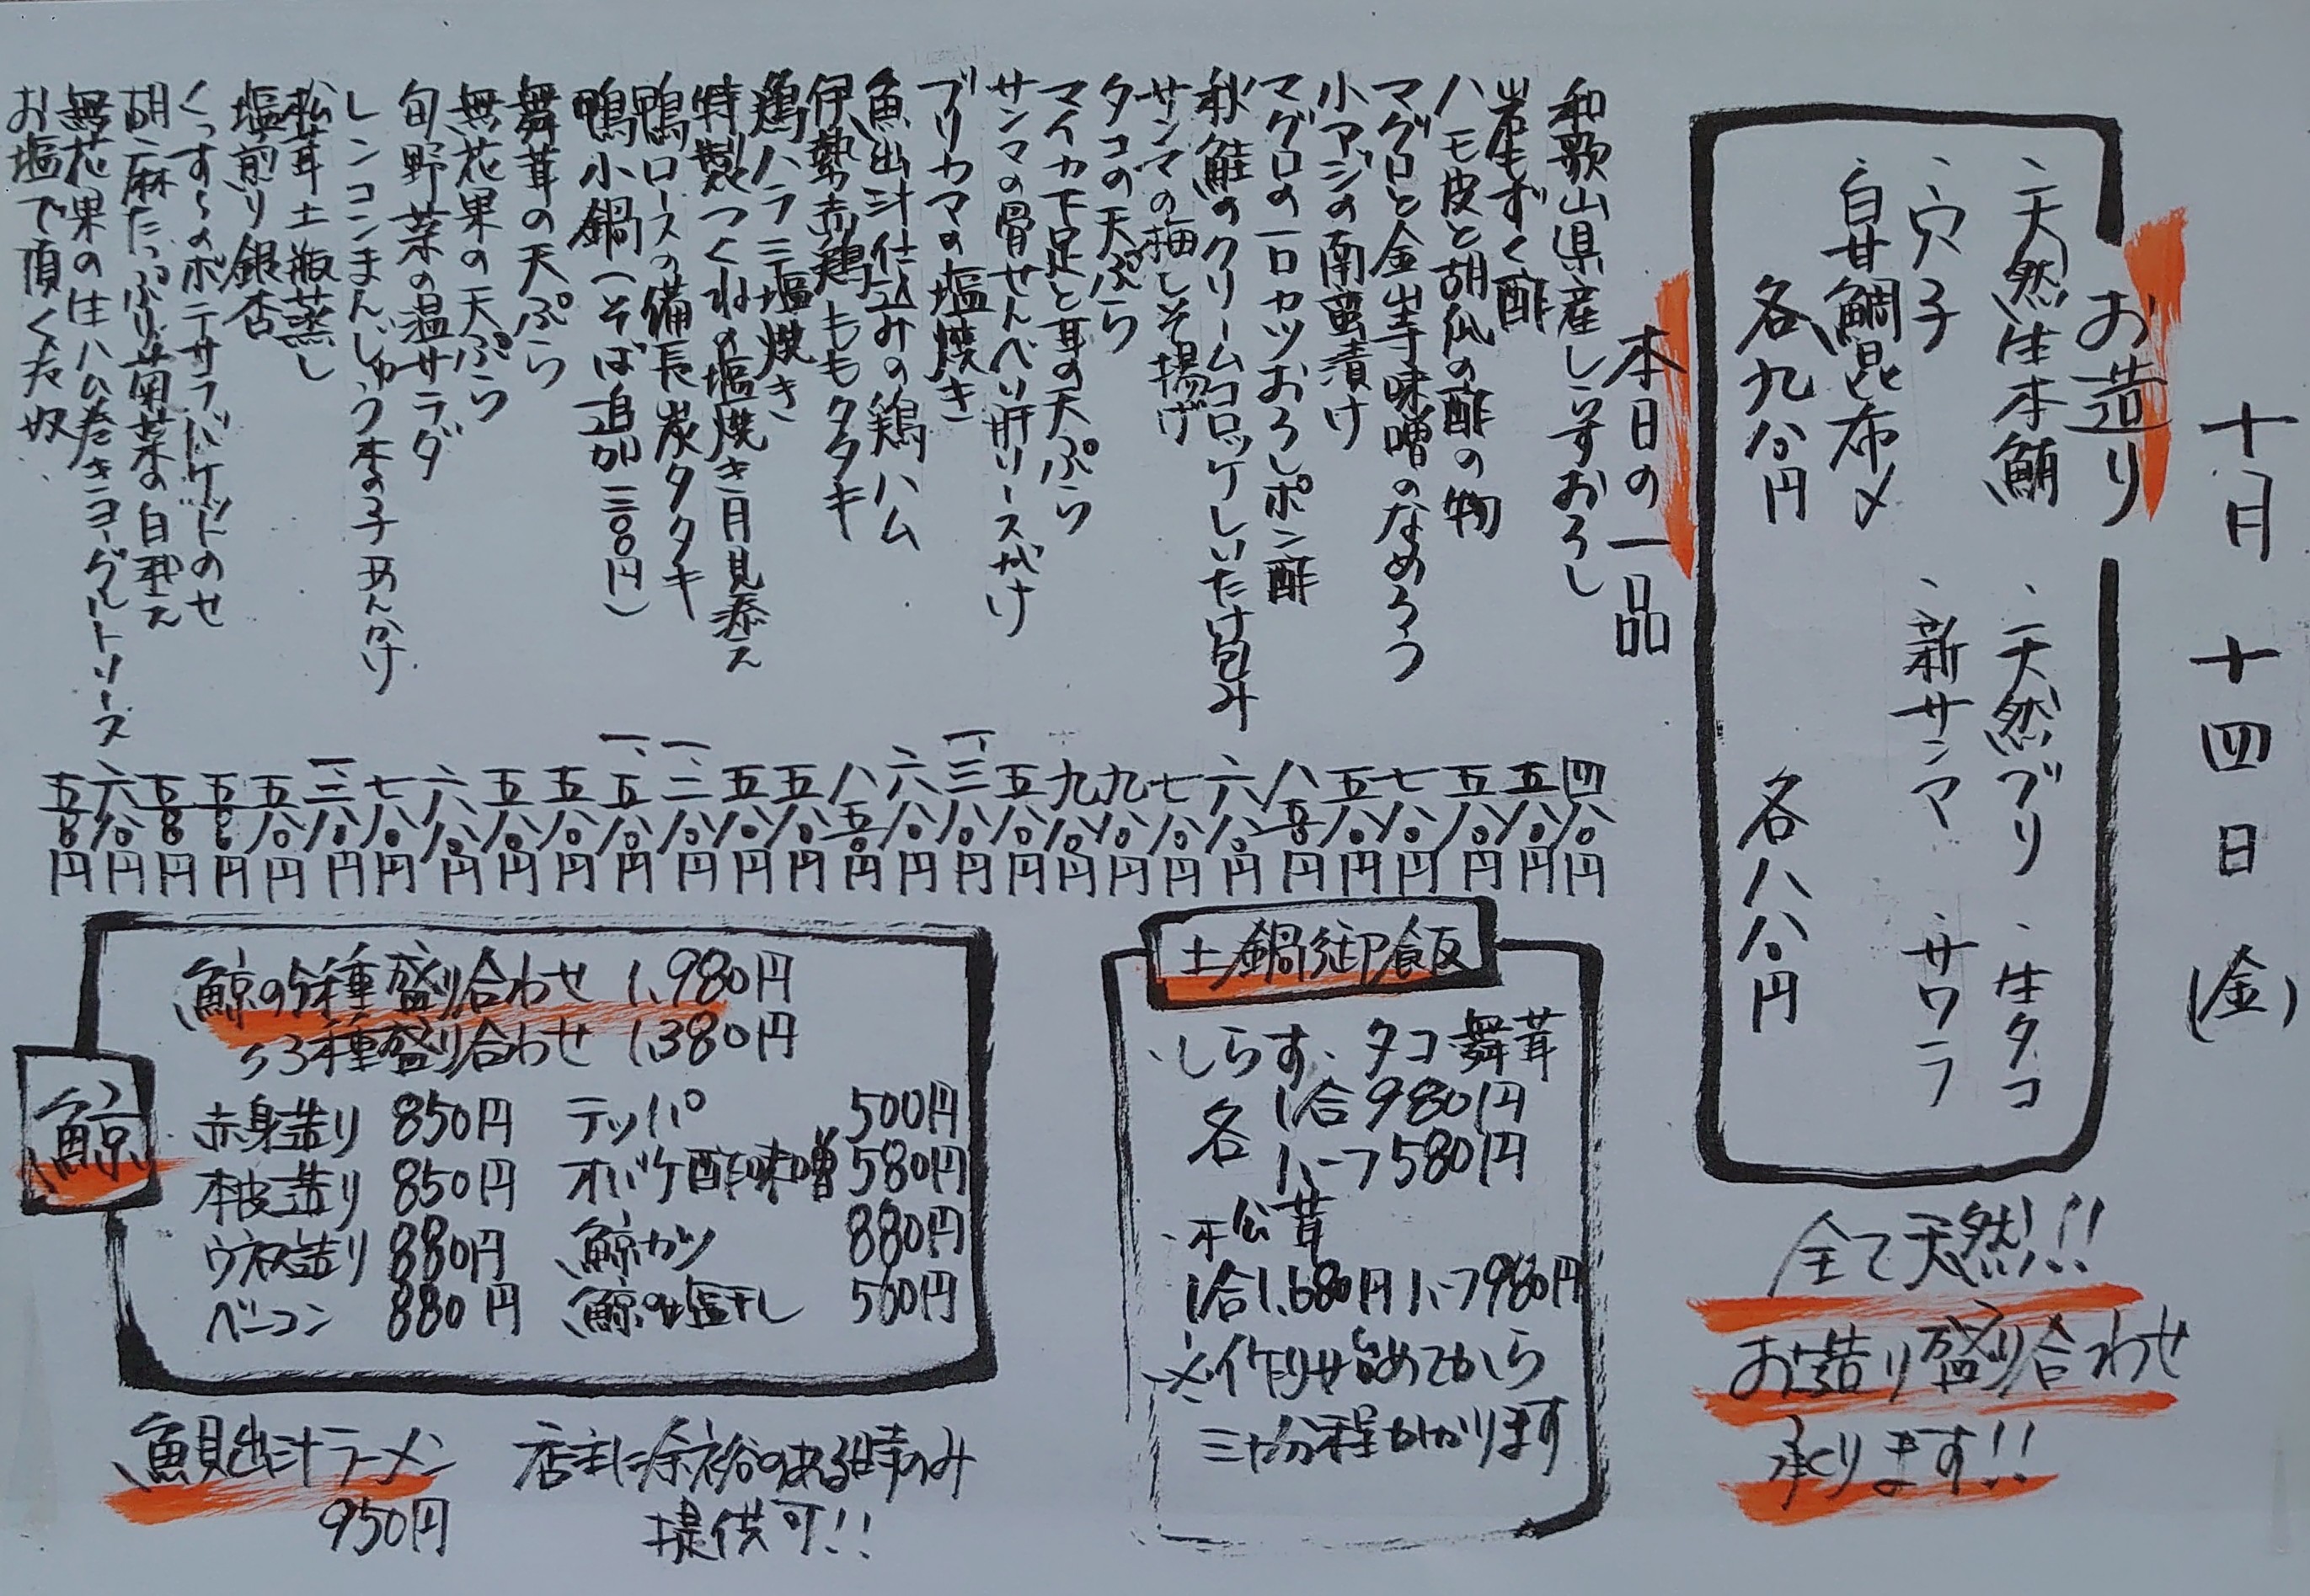 十月 十四日(金)
お造り
、天然生本鮪 、天然ブリ 、生タコ
、穴子 、新サンマ 、サワラ
、白甘鯛昆布〆
各九八〇円 各八八〇円
全て天然!!
お造り盛り合わせ
承ります!!
本日の一品
和歌山県産しらすおろし 四八〇円
岩もずく酢 五八〇円
ハモ皮と胡瓜の酢の物 五八〇円
マグロと金山寺味噌のなめろう 七八〇円
小アジの南蛮漬け 五八〇円
マグロの一口カツおろしポン酢 八五〇円
秋鮭のクリームコロッケしいたけ包み 六八〇円
サンマの梅しそ揚げ 七八〇円
タコの天ぷら 九八〇円
マイカ下足と耳の天ぷら 九八〇円
サンマの骨せんべい肝ソースがけ 五八〇円
ブリカマの塩焼き 一、三八〇円
魚出汁仕込みの鶏ハム 六八〇円
伊勢赤鶏ももタタキ 八五〇円
鶏ハラミ塩焼き 五八〇円
特製つくねの塩焼き月見添え 五八〇円
鴨ロースの備長炭タタキ 一、二八〇円
鴨小鍋(そば追加三三〇円) 一、五八〇円
舞茸の天ぷら 五八〇円
無花果の天ぷら 五八〇円
旬野菜の温サラダ 六八〇円
レンコンまんじゅう木の子あんかけ 七八〇円
松茸土瓶蒸し 一、三八〇円
塩煎り銀杏 五八〇円
くっすらのポテサラバケットのせ 五五〇円
胡麻たっぷり菊菜の白和え 五五〇円
無花果の生ハム巻きヨーグルトソース 六八〇円
お塩で頂く冷奴 五五〇円
土鍋御飯
、しらす、タコ、舞茸
各 1合980円
ハーフ580円
、松茸
1合1,680円ハーフ980円
※作り始めてから
三十分程かかります
鯨
鯨の5種盛り合わせ 1,980円
〃3種盛り合わせ 1,380円
赤身造り 850円 テッパ 500円
本皮造り 850円 オバケ酢味噌 580円
ウネ造り 880円 鯨カツ 880円
ベーコン 880円 鯨の塩干し 500円
魚貝出汁ラーメン
950円
店主に余裕のある時のみ
提供可!!